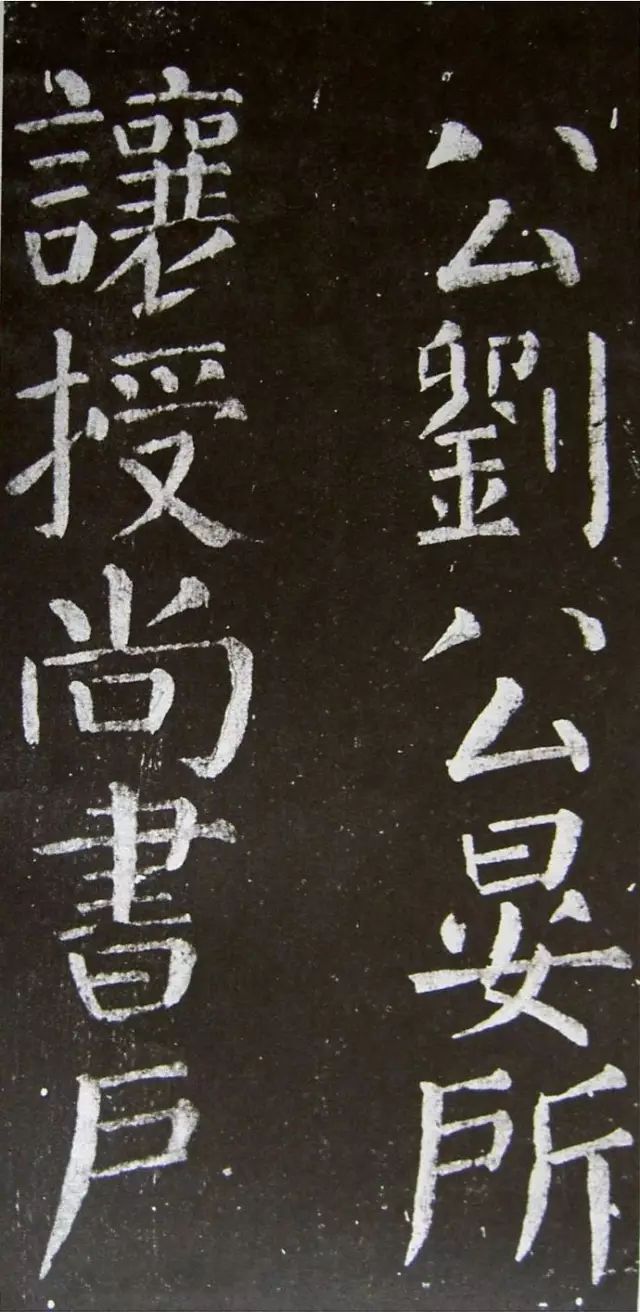 公劉公晏所
讓授尚書戶